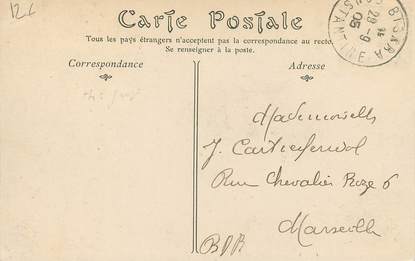 12-
Carte Postale
Tous les pays étrangers n'acceptent pas la correspondance au recto.
Se renseigner à la poste.
BISKRA
28-9
05
CONSTANTINE
Correspondance
Adresse
Mademoiselle
J.
Rue Chevalier Roze 6
Marseille
BDR